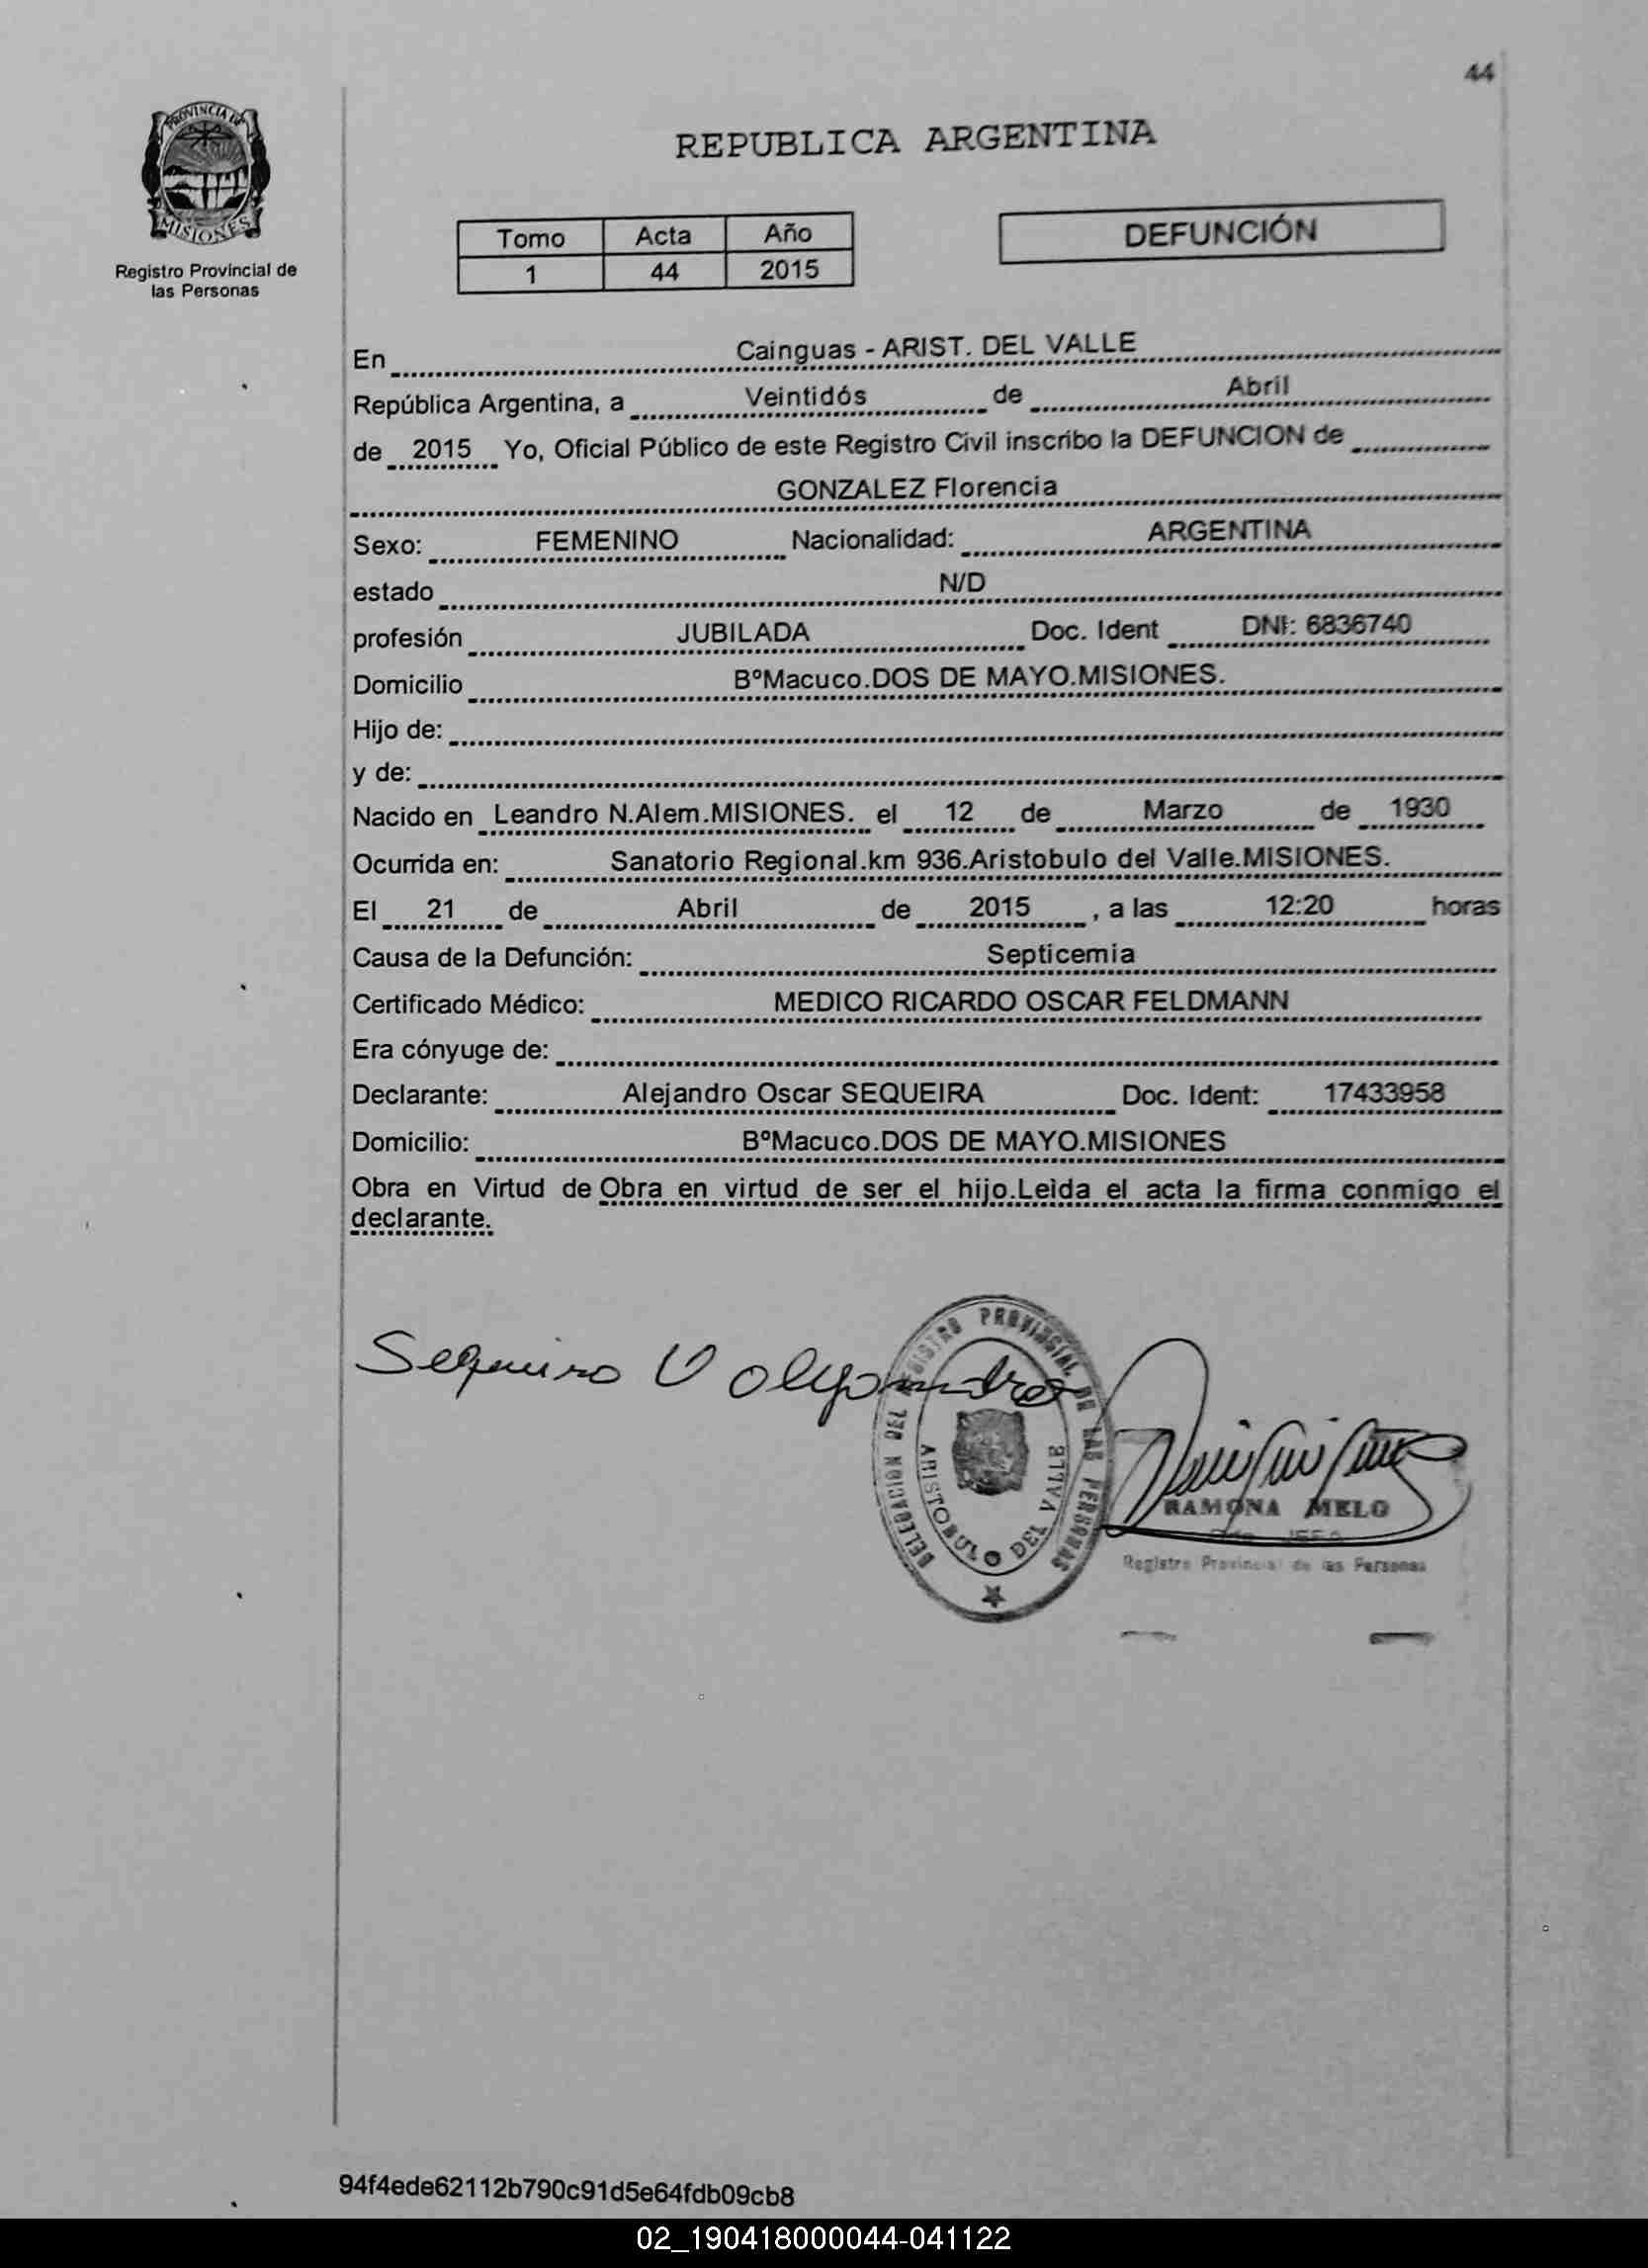 44
PROVINCIA DE
MISIONES
Registro Provincial de
las Personas
REPUBLICA ARGENTINA
Tomo Acta Año
1 44 2015
DEFUNCIÓN
En Cainguas - ARIST. DEL VALLE
República Argentina, a Veintidós de Abril
de 2015 Yo, Oficial Público de este Registro Civil inscribo la DEFUNCION de
GONZALEZ Florencia
Sexo: FEMENINO Nacionalidad: ARGENTINA
estado N/D
profesión JUBILADA Doc. Ident DNI: 6836740
Domicilio BºMacuco.DOS DE MAYO.MISIONES.
Hijo de:
y de:
Nacido en Leandro N.Alem.MISIONES. el 12 de Marzo de 1930
Ocurrida en: Sanatorio Regional.km 936.Aristobulo del Valle.MISIONES.
El 21 de Abril de 2015 , a las 12:20 horas
Causa de la Defunción: Septicemia
Certificado Médico: MEDICO RICARDO OSCAR FELDMANN
Era cónyuge de:
Declarante: Alejandro Oscar SEQUEIRA Doc. Ident: 17433958
Domicilio: BºMacuco.DOS DE MAYO.MISIONES
Obra en Virtud de Obra en virtud de ser el hijo.Leida el acta la firma conmigo el
declarante.
DELEGACION DEL REGISTRO PROVINCIAL DE LAS PERSONAS
ARISTOBULO DEL VALLE
RAMONA MELO
JEFA
Registro Provincial de las Personas
94f4ede62112b790c91d5e64fdb09cb8
02_190418000044-041122